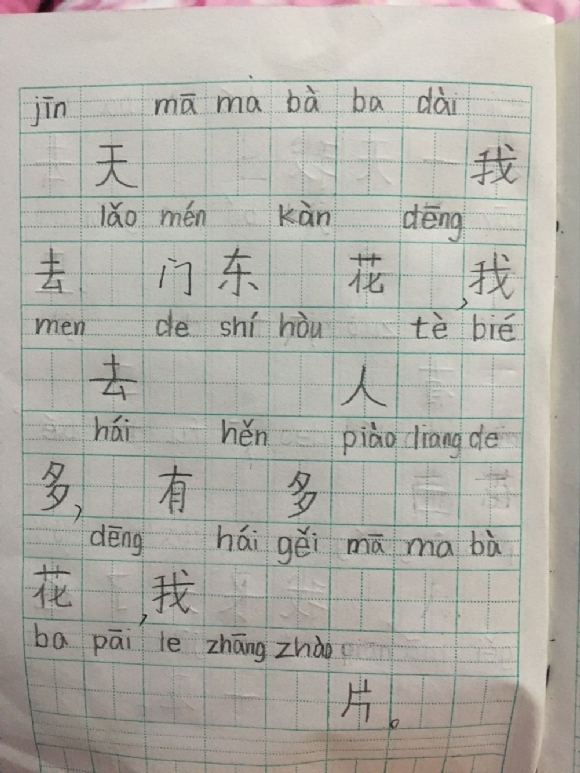 jīn mā ma bà ba dài
天 我
lǎo mén kàn dēng
去 门 东 花 ,我
men de shí hòu tè bié
去 人
hái hěn piào liang de
多, 有 多
dēng hái gěi mā ma bà
花 ,我
ba pāi le zhāng zhào
片。